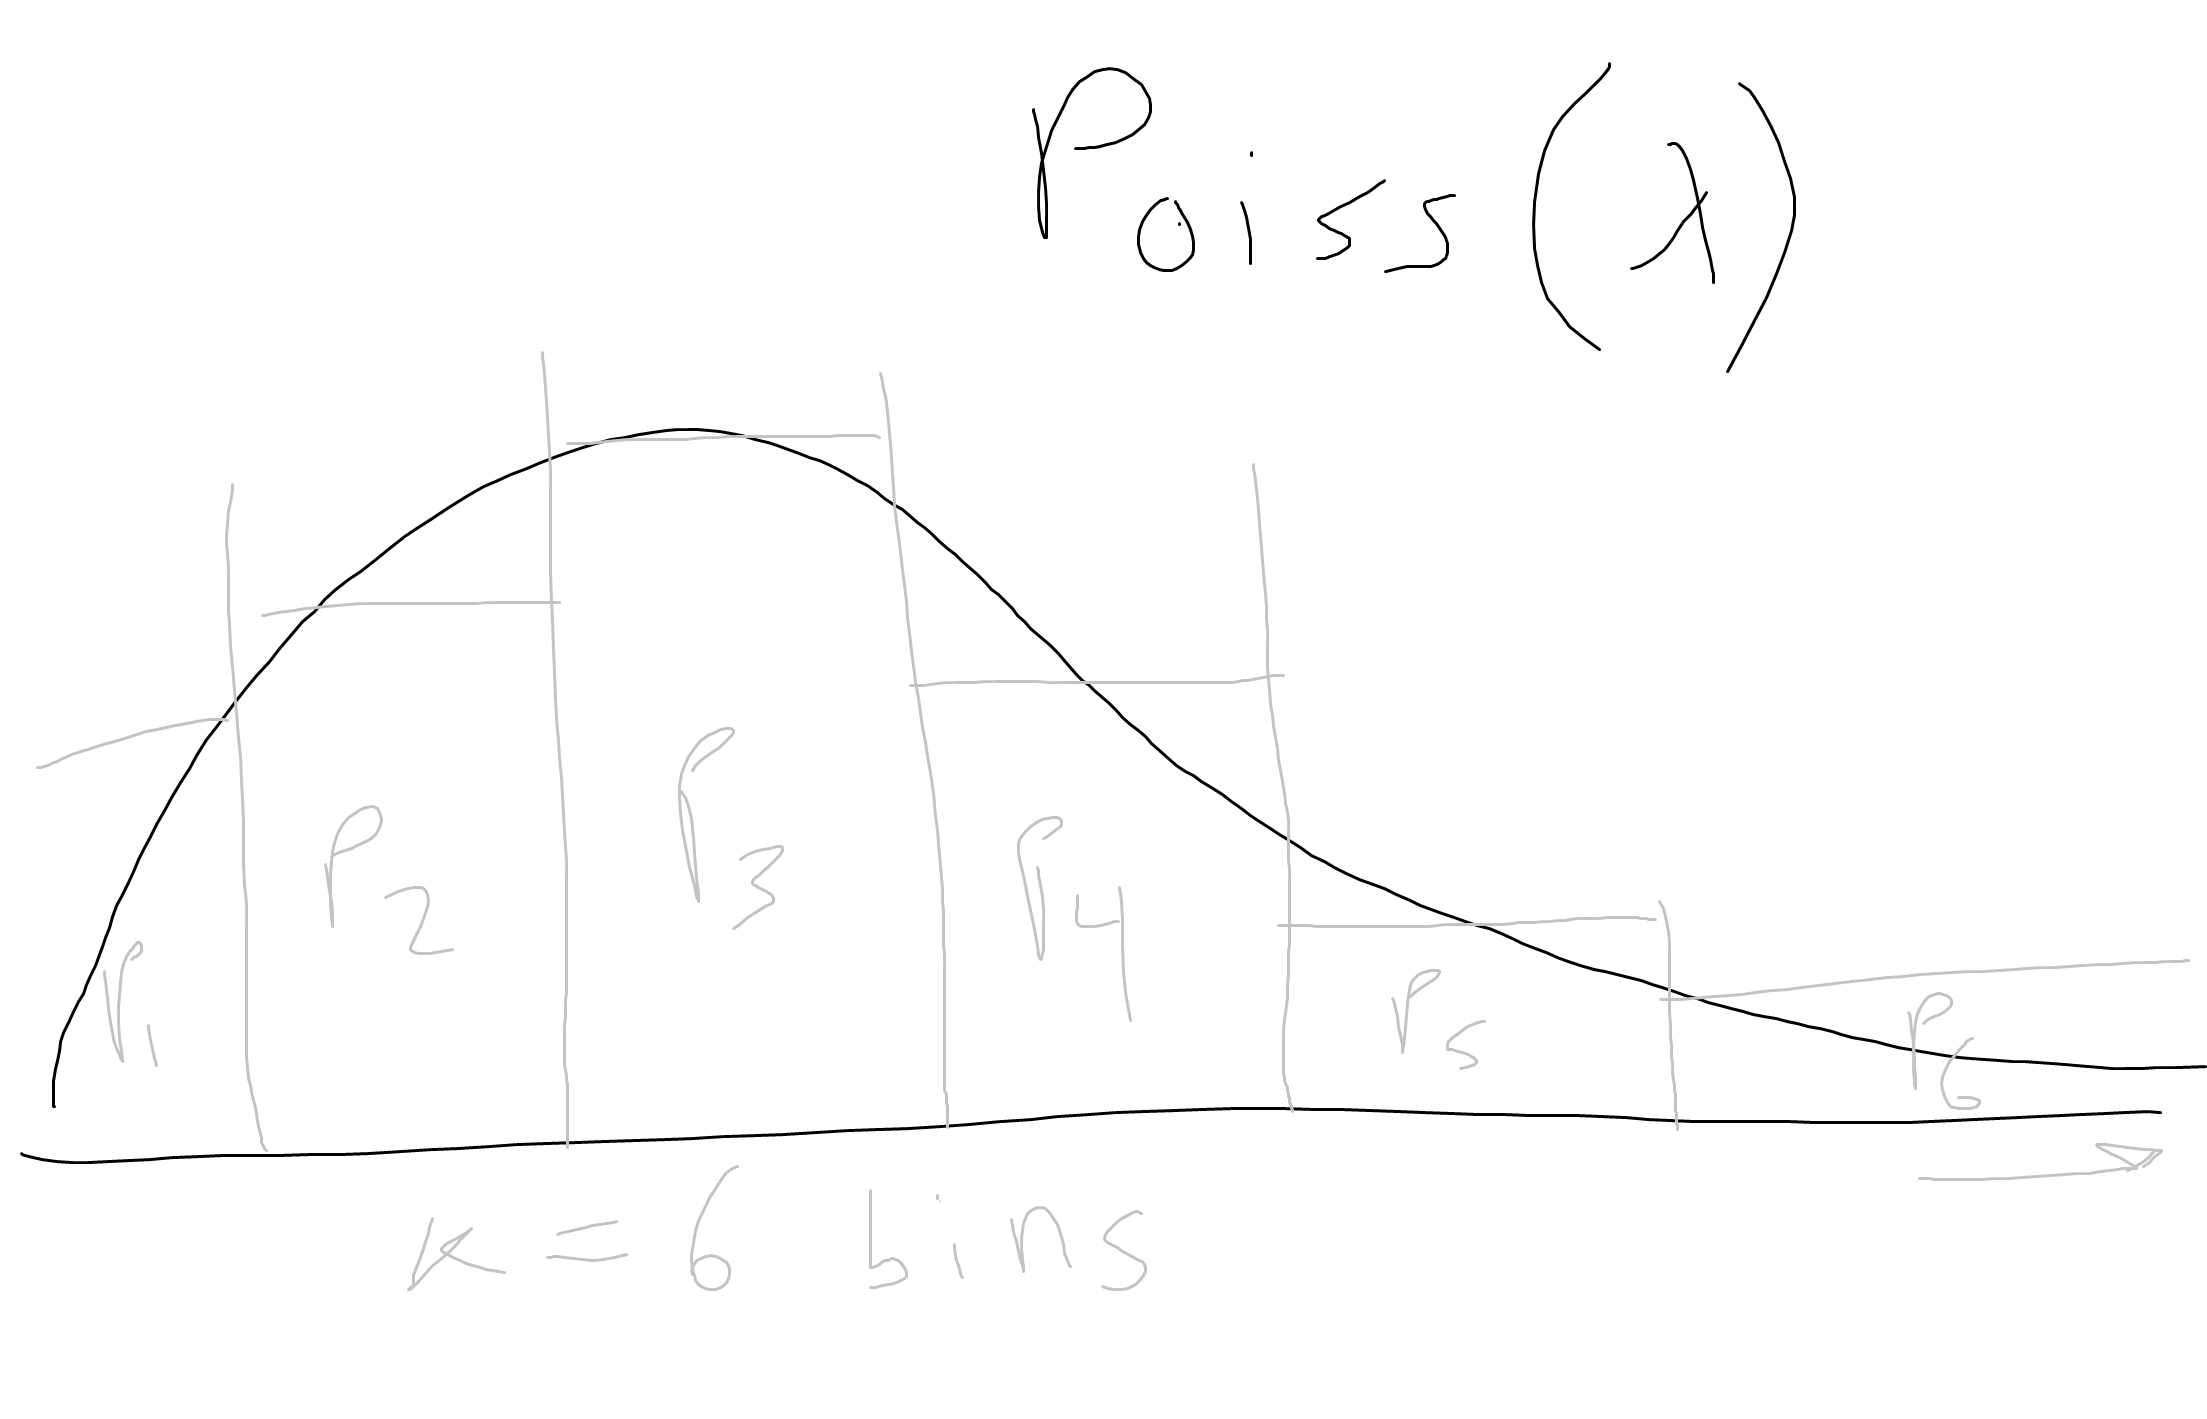 Poiss(λ)
P1
P2
P3
P4
P5
P6
K = 6 bins